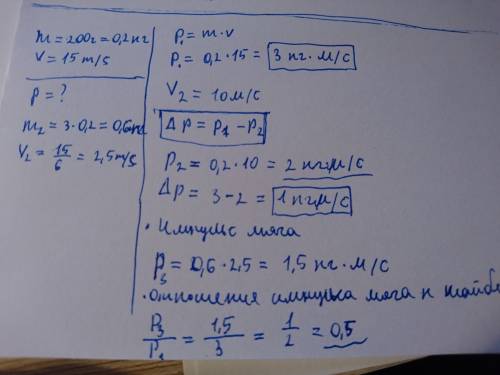 m = 200г = 0,2 кг
V = 15 m/s
P = ?
m₂ = 3 · 0,2 = 0,6 кг
V₂ = 15/6 = 2,5 m/s
P₁ = m · v
P₁ = 0,2 · 15 = 3 кг · м/с
V₂ = 10 м/с
Δp = P₁ - P₂
P₂ = 0,2 · 10 = 2 кг м/с
Δp = 3 - 2 = 1 кг м/с
· Импульс мяга
P₃ = 0,6 · 2,5 = 1,5 кг · м/с
· отношения импулька мяга к
P₃/P₁ = 1,5/3 = 1/2 = 0,5